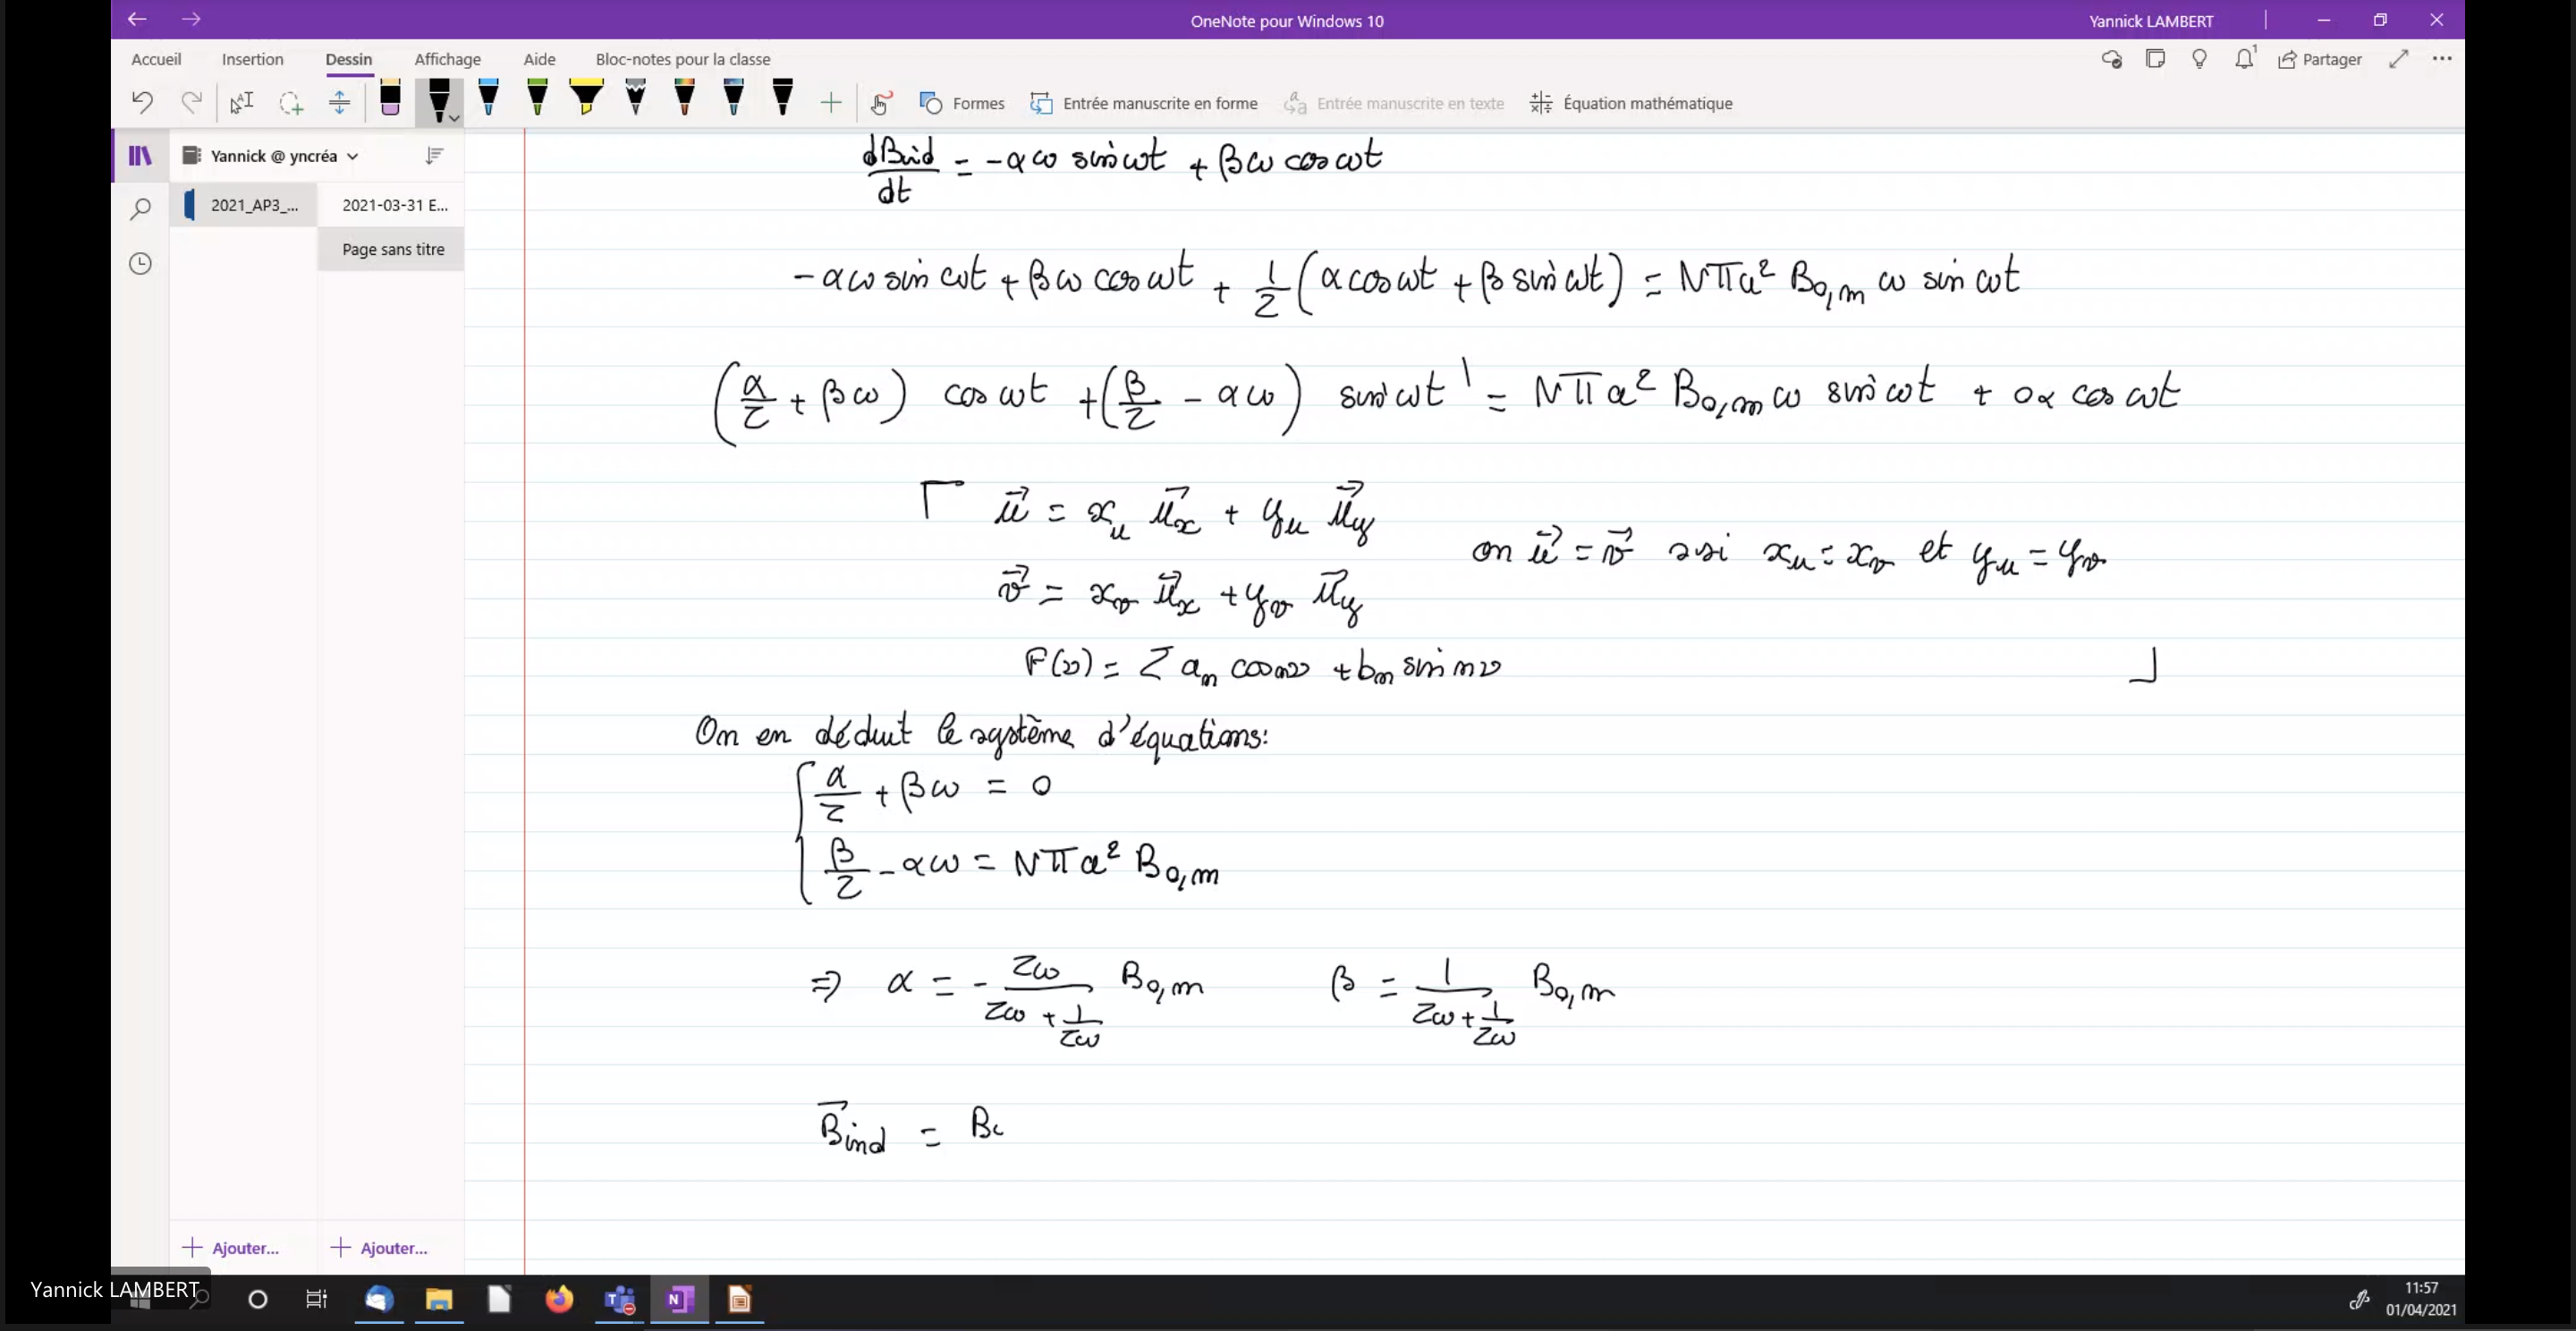 OneNote pour Windows 10
Yannick LAMBERT
Accueil Insertion Dessin Affichage Aide Bloc-notes pour la classe
Partager
Formes Entrée manuscrite en forme Entrée manuscrite en texte Équation mathématique
Yannick @ yncréa
2021_AP3_...
2021-03-31 E...
Page sans titre
dBind/dt = -αω sin ωt + βω cos ωt
-αω sin ωt + βω cos ωt + 1/τ (α cos ωt + β sin ωt) = Nπa² B0,m ω sin ωt
(α/τ + βω) cos ωt + (β/τ - αω) sin ωt = Nπa² B0,m ω sin ωt + 0x cos ωt
u⃗ = xu u⃗x + yu u⃗y
on u⃗ = v⃗ ssi xu = xv et yu = yv
v⃗ = xv u⃗x + yv u⃗y
F(ν) = Σ an cos nν + bn sin nν
On en déduit le système d'équations:
α/τ + βω = 0
β/τ - αω = Nπa² B0,m
⇒ α = - τω/(τω + 1/τω) B0,m β = 1/(τω + 1/τω) B0,m
B⃗ind = B
Ajouter... Ajouter...
Yannick LAMBERT
11:57
01/04/2021